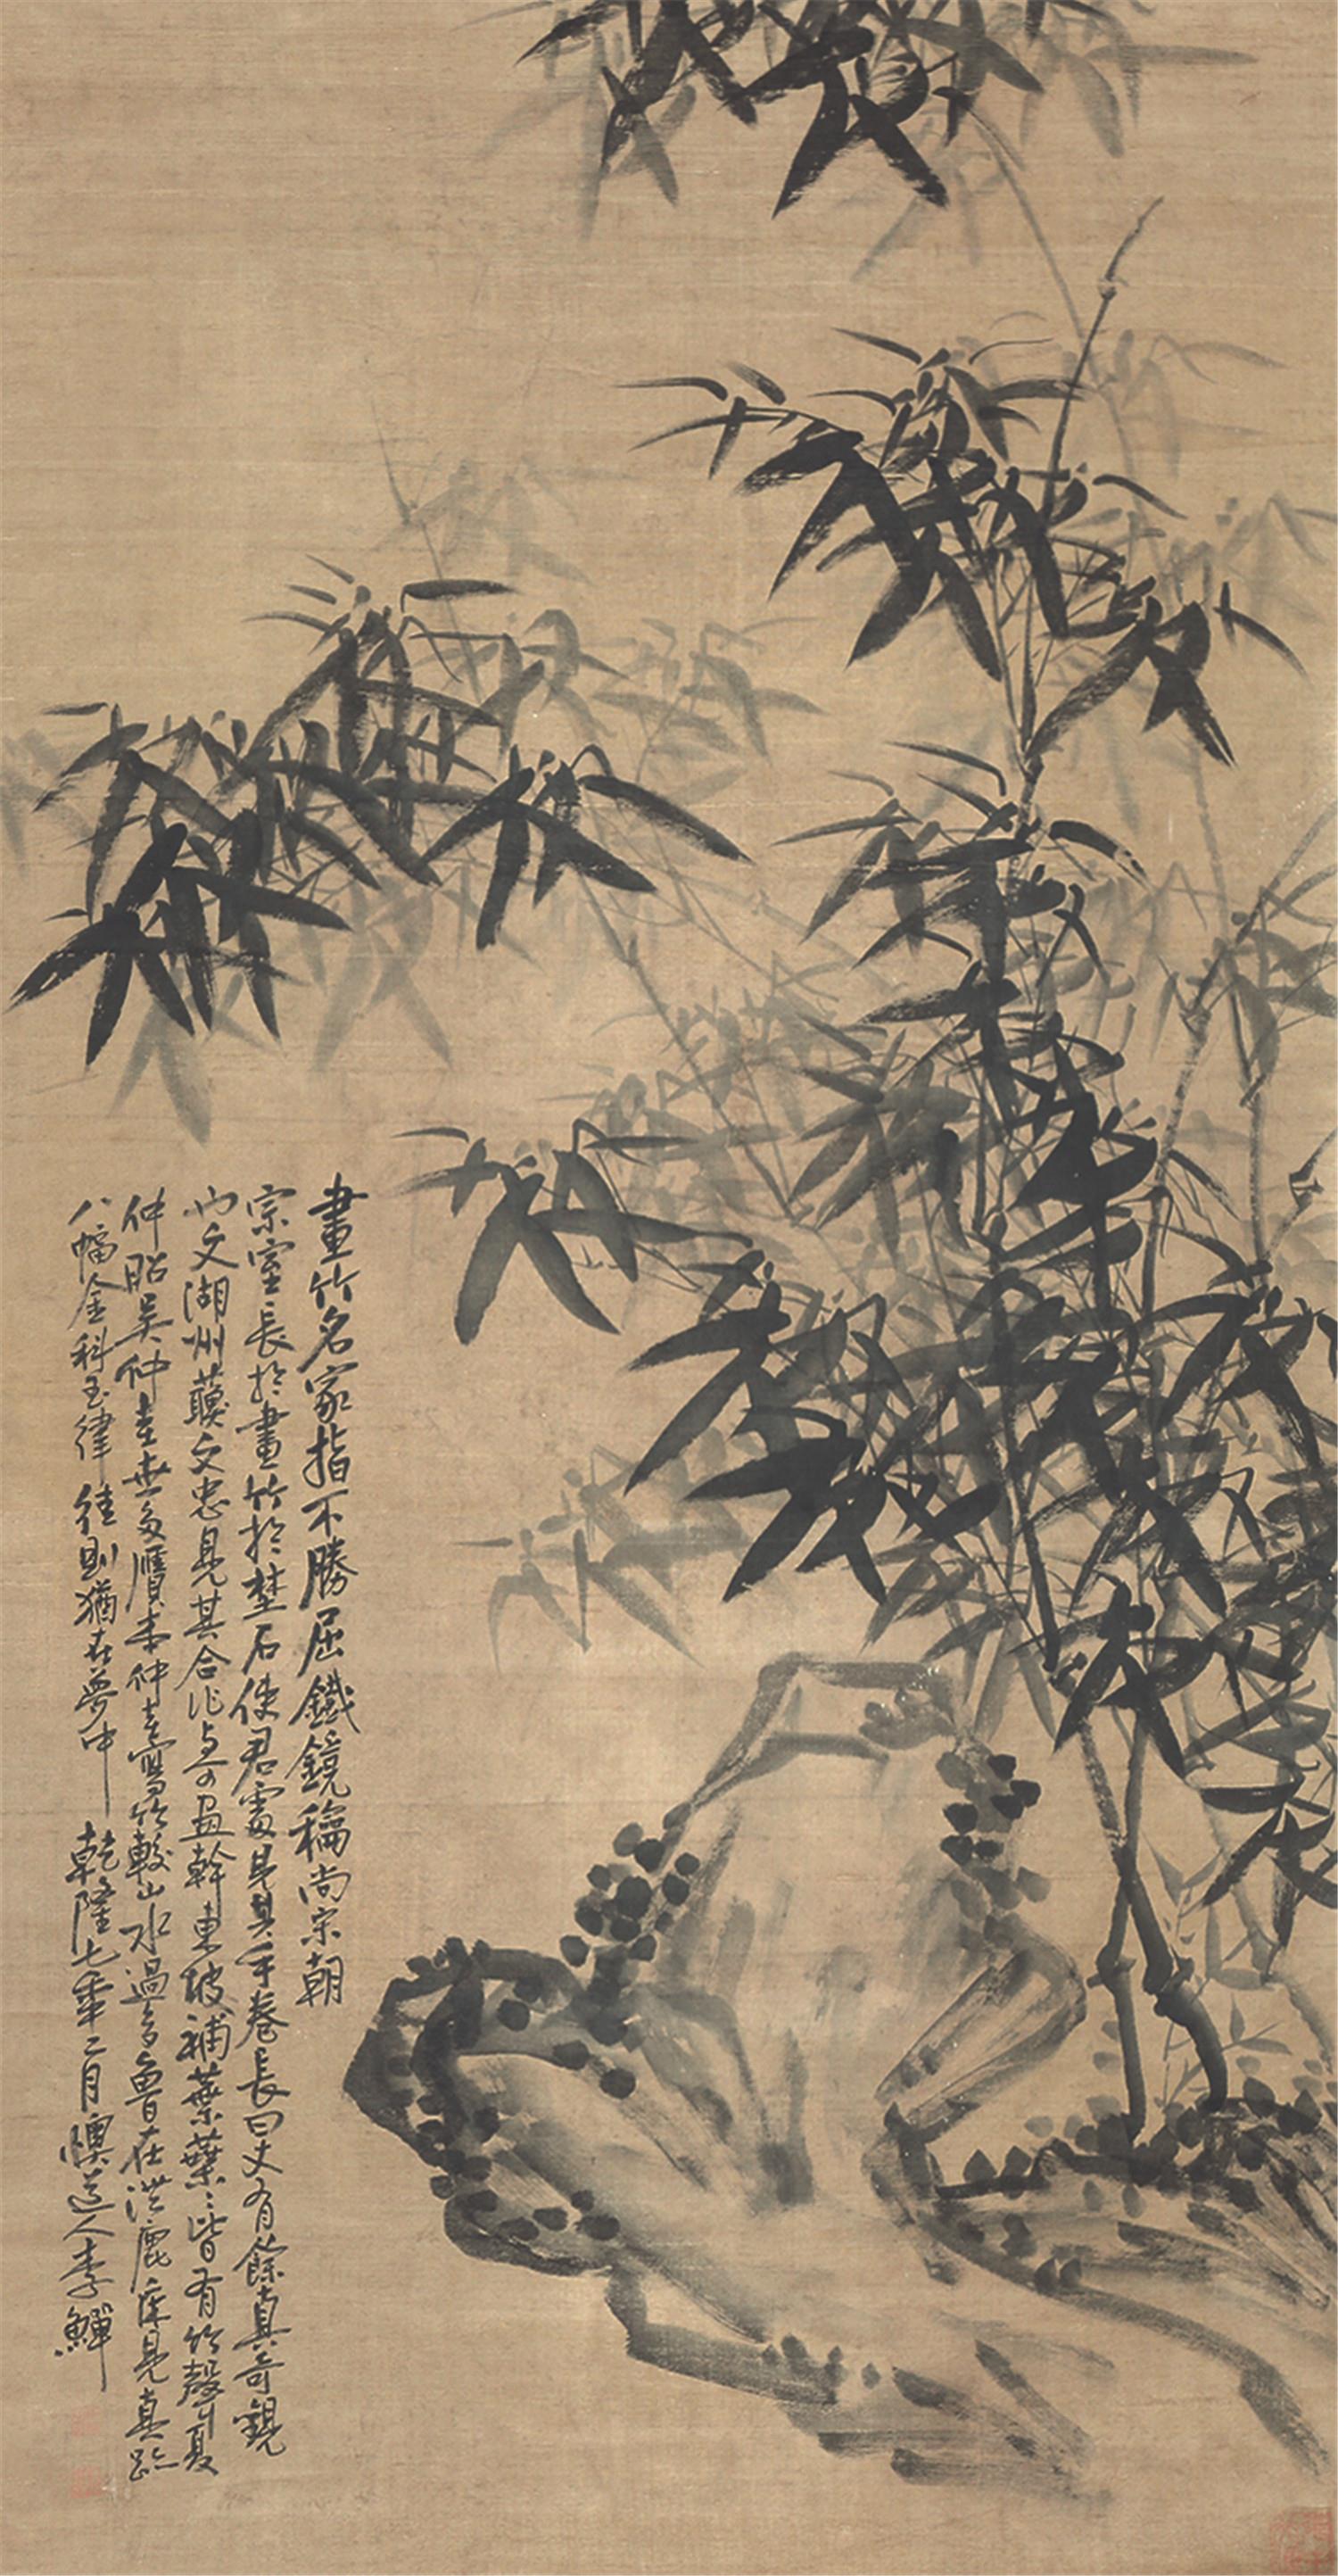 畫竹名家指不勝屈鐵鏡穚尚宗朝
宗室長於畫竹於埜石使君處見其手卷長四丈有餘真奇觀
也文湖州蘇文忠見其合作與可畫幹東坡補葉葉〻皆有竹聲夏
仲昭吳仲圭世多贋本仲圭寫竹較山水過多魯在洪鹿庵見真跡
八幅金科玉律往則猶在夢中 乾隆七年二月懊道人李鱓